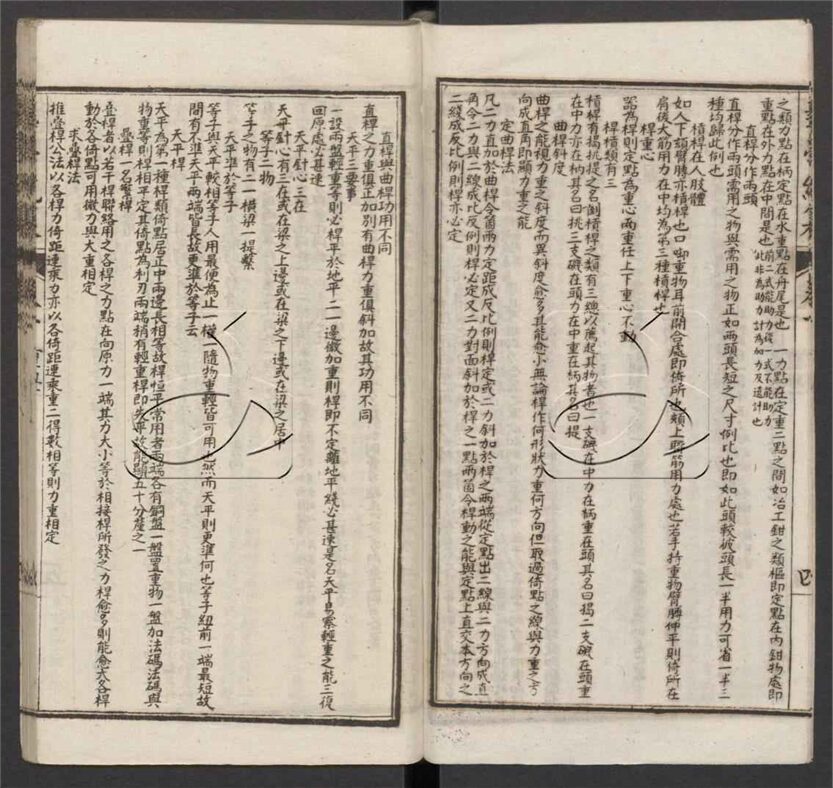 之類力點在柄定點在水重點在舟尾是也一力點在定重二點之間如冶工鉗之類樞即定點在內鉗物處即
重點在外力點在中間是也前二式能助力後一式不能助力此非為助力計為加力及遠計也
直桿分作兩頭
直桿分作兩頭需用之物與需用之物正如兩頭長短之尺寸例比也即如此頭較彼頭長一半用力可省一半三
種均歸此例也
槓桿在人肢體
如人下頷臂膊亦槓桿也口啣重物耳前開合處即倚所也頰上觔筋用力處也若手持重物臂膊伸平則倚所在
肩後大筋用力在中均為第三種槓桿也
桿重心
器為桿則定點為重心兩重任上下重心不動
桿槓類有三
槓桿有揭挑提之名倒槓桿之類有三總以薦起其物者也一支磯在中力在柄重在頭其名曰揭二支磯在頭重
在中力亦在柄其名曰挑三支磯在頭力在中重在柄其名曰提
曲桿斜度
曲桿之能視力重之斜度而異斜度愈多其能愈小無論桿作何形狀力重何方向但取過倚點之線與力重之方
向成直角即顯力重之能
定曲桿法
凡二力直加於曲桿令箇兩力定距成反比例則桿定或二力斜加於桿之兩端從定點出二線與二力方向成直
角令二力與二線成比反例則桿必定又二力對面斜加於桿之一點兩箇令桿動之能與定點上直交本方向之
二線成反比例則桿亦必定
直桿與曲桿功用不同
直桿之力重俱正加別有曲桿力重俱斜加故其功用不同
天平三要事
一設兩盤輕重等則必桿平於地平二一邊微加重則桿即不定離地平綫必甚速是名天平易察輕重之能三復
回原處必甚速
天平針心三在
天平針心有三在或在梁之上邊或在梁之下邊或在梁之居中
等子二物
等子之物有二一橫梁一提繫
天平準於等子
等子與天平較相等子人用最便為止一權一隨物重輕皆可用也然而天平則更準何也等子紐前一端最短故
間有不準天平兩端皆長故更準於等子云
天平桿
天平為第一種桿類倚點居正中兩邊長相等故桿恒平常用者兩端各有銅盤一盤置重物一盤加法碼法碼與
物重等則桿相平定其倚點為利刃兩端稍有輕重桿即失平故能顯五十分釐之一
疊桿一名繁桿
疊桿者以若干桿聯絡用之各桿之力點在向原力一端其力大小等於相接桿所發之力桿愈多則能愈大各桿
動於各倚點可用微力與大重相定
求疊桿法
推疊桿公法以各桿力倚距連乘力亦以各倚距連乘重二得數相等則力重相定